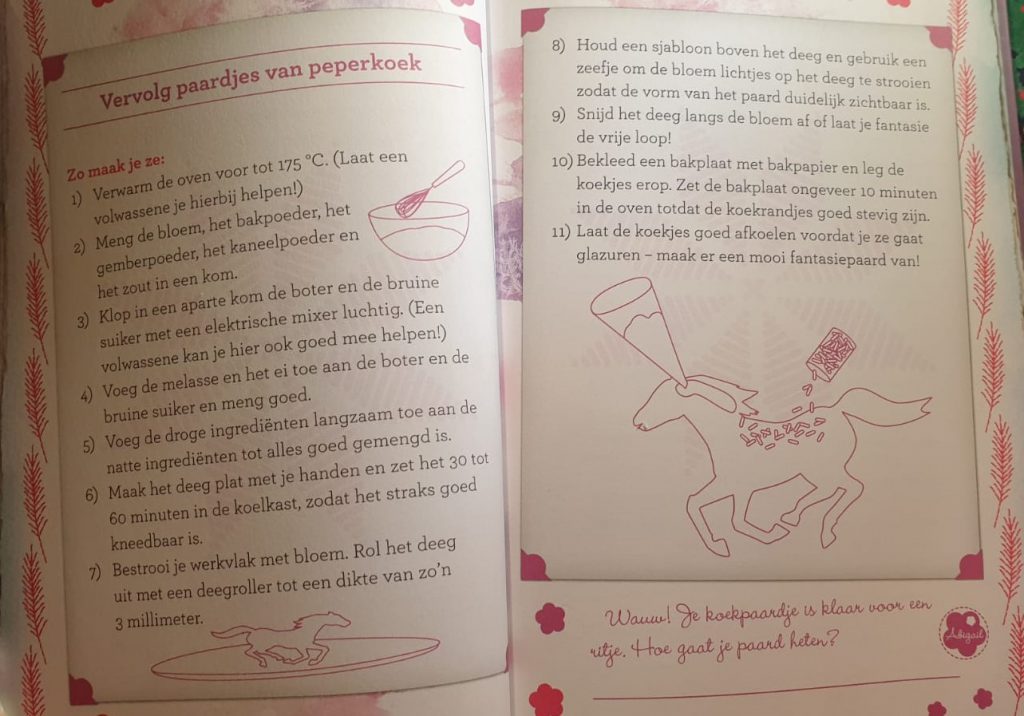 Vervolg paardjes van peperkoek
Zo maak je ze:
1) Verwarm de oven voor tot 175 °C. (Laat een
volwassene je hierbij helpen!)
2) Meng de bloem, het bakpoeder, het
gemberpoeder, het kaneelpoeder en
het zout in een kom.
3) Klop in een aparte kom de boter en de bruine
suiker met een elektrische mixer luchtig. (Een
volwassene kan je hier ook goed mee helpen!)
4) Voeg de melasse en het ei toe aan de boter en de
bruine suiker en meng goed.
5) Voeg de droge ingrediënten langzaam toe aan de
natte ingrediënten tot alles goed gemengd is.
6) Maak het deeg plat met je handen en zet het 30 tot
60 minuten in de koelkast, zodat het straks goed
kneedbaar is.
7) Bestrooi je werkvlak met bloem. Rol het deeg
uit met een deegroller tot een dikte van zo'n
3 millimeter.
8) Houd een sjabloon boven het deeg en gebruik een
zeefje om de bloem lichtjes op het deeg te strooien
zodat de vorm van het paard duidelijk zichtbaar is.
9) Snijd het deeg langs de bloem af of laat je fantasie
de vrije loop!
10) Bekleed een bakplaat met bakpapier en leg de
koekjes erop. Zet de bakplaat ongeveer 10 minuten
in de oven totdat de koekrandjes goed stevig zijn.
11) Laat de koekjes goed afkoelen voordat je ze gaat
glazuren – maak er een mooi fantasiepaard van!
Wauw! Je koekpaardje is klaar voor een
ritje. Hoe gaat je paard heten?
Abigail